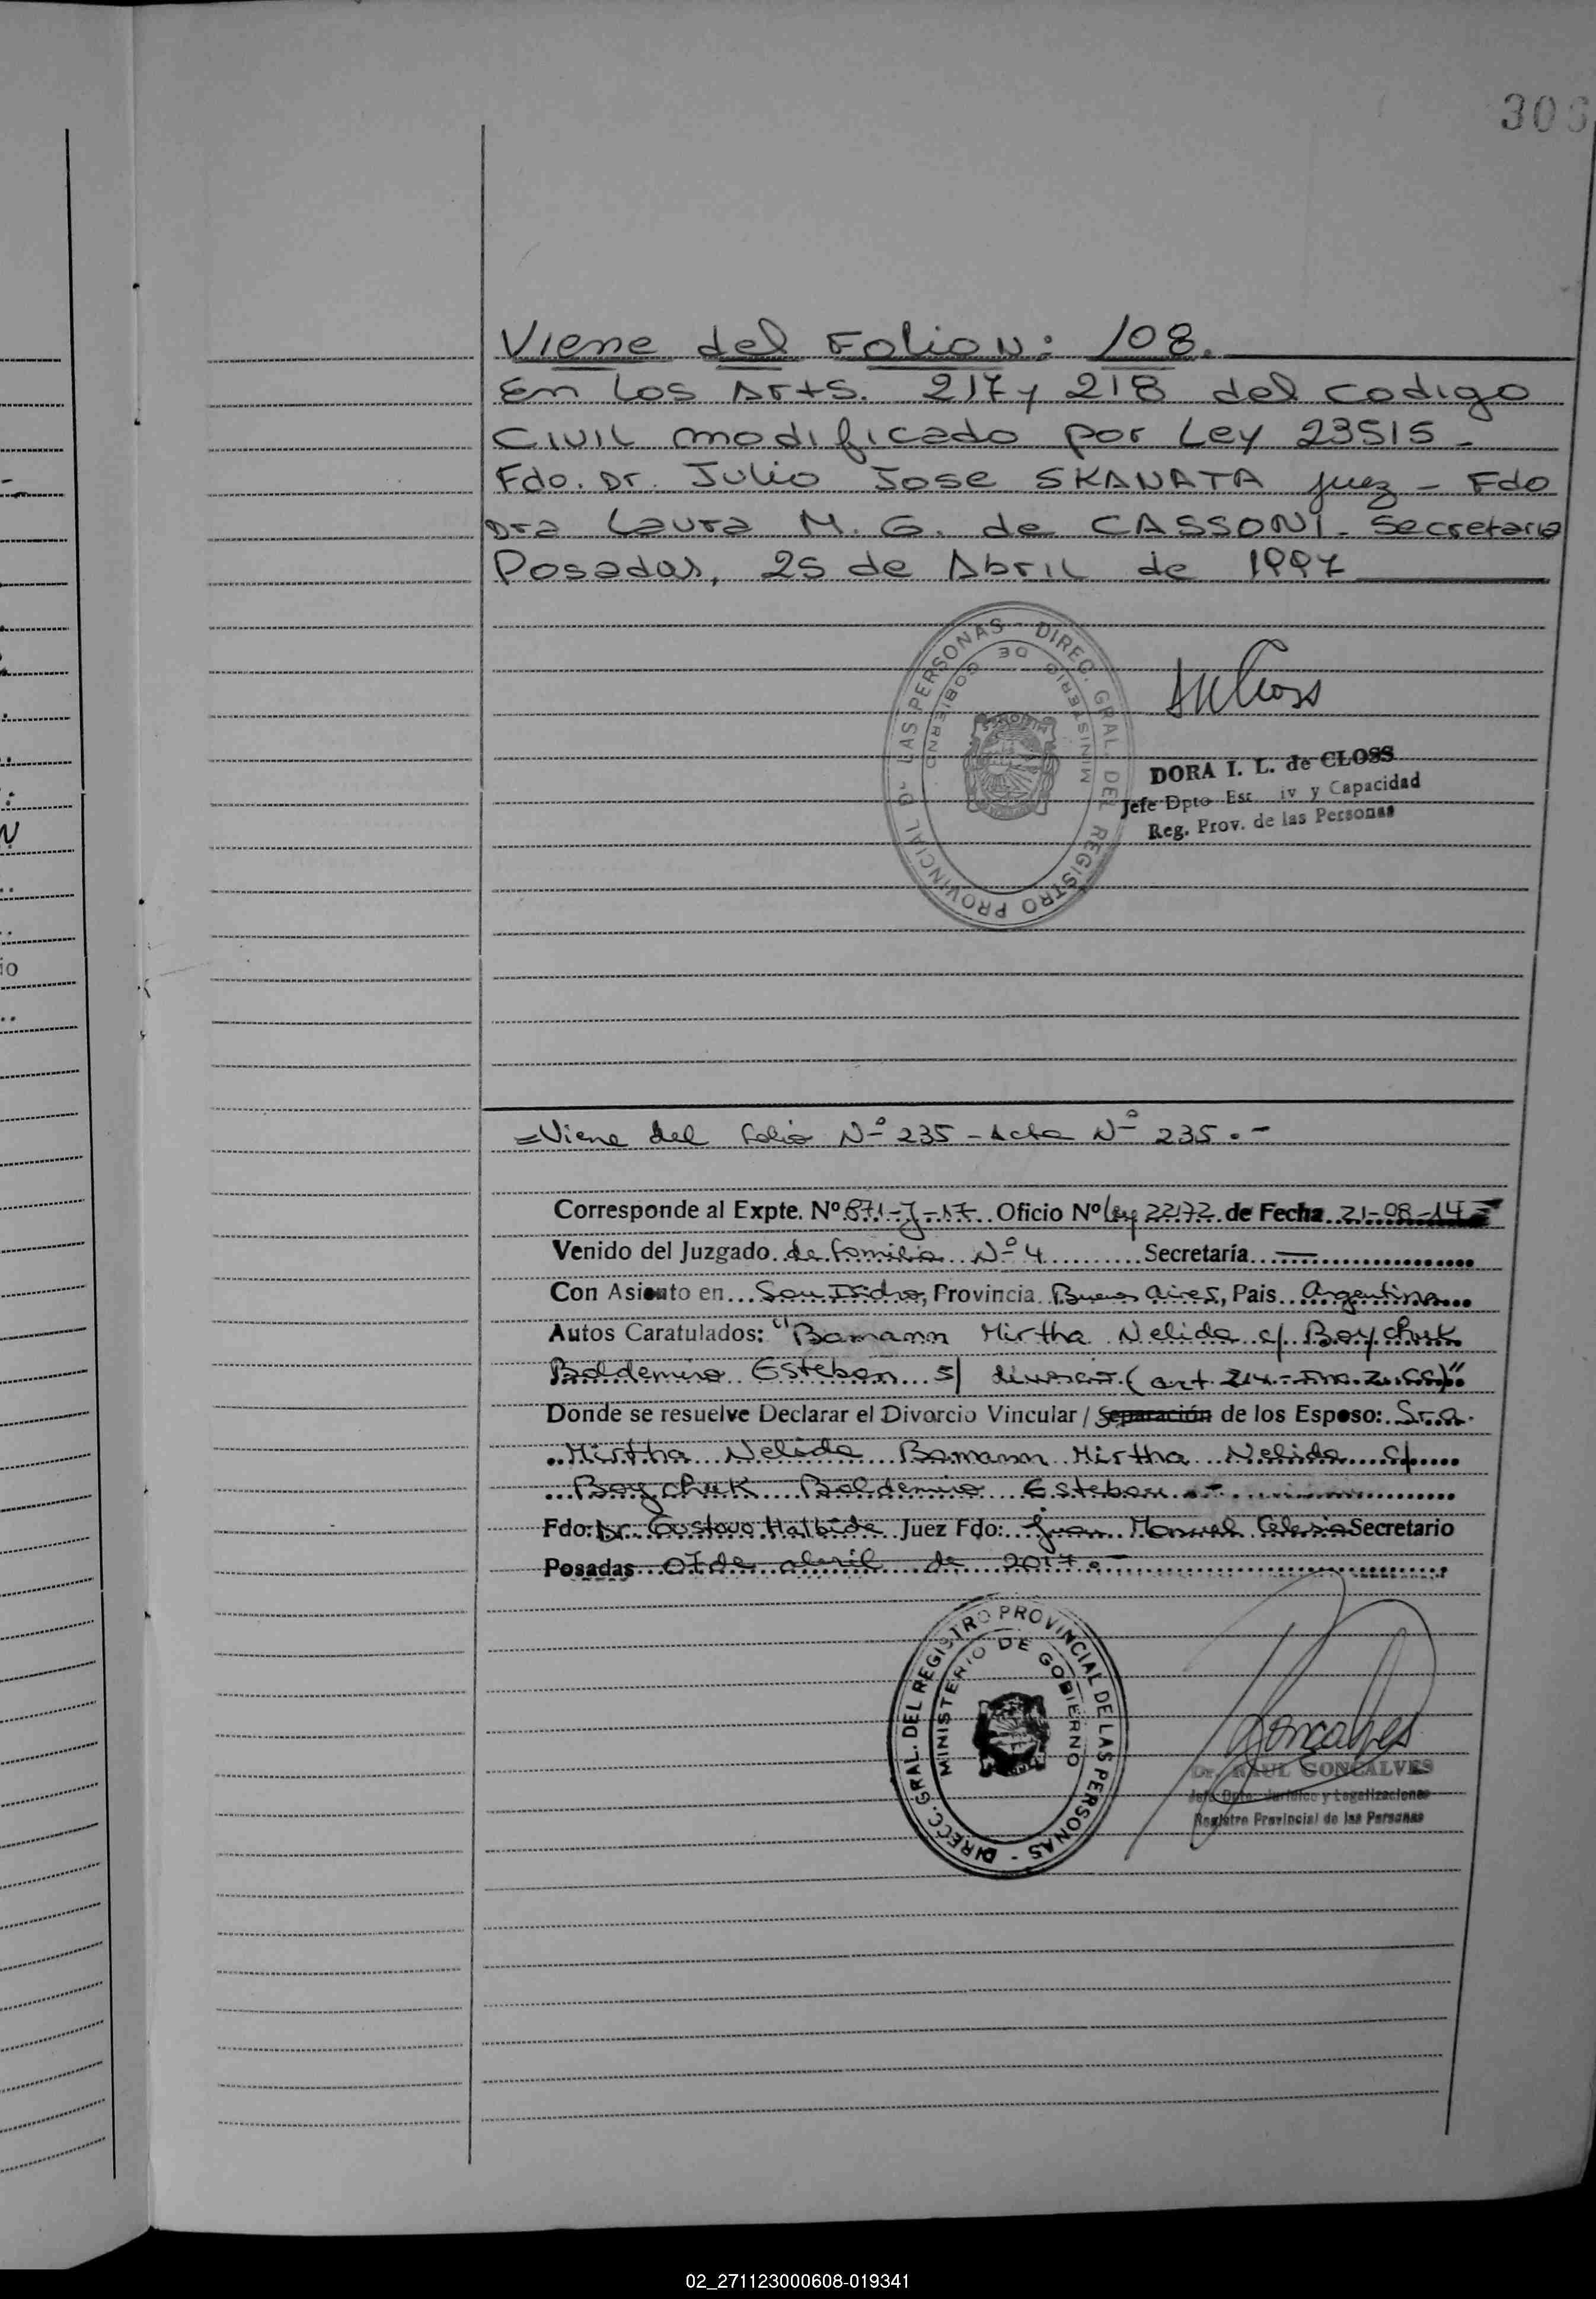 306
Viene del Folio N: 108.
En los Arts. 217 y 218 del codigo
Civil modificado por Ley 23515 -
Fdo. Dr. Julio Jose SKANATA juez - Fdo
Dra Laura M. G. de CASSONI - Secretaria
Posadas, 25 de Abril de 1997
DIREC. GRAL. DEL REGISTRO PROVINCIAL D. LAS PERSONAS -
MINISTERIO DE GOBIERNO
DORA I. L. de CLOSS
Jefe Dpto Est iv y Capacidad
Reg. Prov. de las Personas
= Viene del folio Nº 235 - Acta Nº 235 . -
Corresponde al Expte. Nº 871-J-17 Oficio Nº Ley 22172 de Fecha 21-08-14
Venido del Juzgado de familia Nº 4 Secretaría —
Con Asiento en San Isidro, Provincia Buenos Aires, Pais Argentina
Autos Caratulados: "Bamann Mirtha Nelida c/ Boychuk
Boldemiro Esteban s/ divorcio (art. 214 - inc. 2
Donde se resuelve Declarar el Divorcio Vincular / Separación de los Esposo: Sra.
Mirtha Nelida Bamann Mirtha Nelida c/
Boychuk Boldemiro Esteban . -
Fdo: Dr. Gustavo Halbide Juez Fdo: Juan Manuel Secretario
Posadas 07 de abril de 2017 . -
DIRECC. GRAL. DEL REGISTRO PROVINCIAL DE LAS PERSONAS -
MINISTERIO DE GOBIERNO
Goncalves
Dr. RAUL GONCALVES
Jefe Dpto. Jurídico y Legalizaciones
Registro Provincial de las Personas
02_271123000608-019341